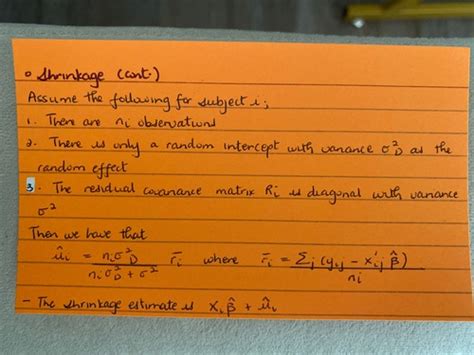 • Shrinkage (cont.)
Assume the following for subject i;
1. There are nᵢ observations
2. There is only a random intercept with variance σ²_D as the
random effect
3. The residual covariance matrix Rᵢ is diagonal with variance
σ²
Then we have that
ûᵢ = nᵢσ²_D / (nᵢσ²_D + σ²) r̄ᵢ where r̄ᵢ = Σⱼ (yᵢⱼ − x'ᵢⱼ β̂) / nᵢ
- The shrinkage estimate is Xᵢβ̂ + ûᵢ